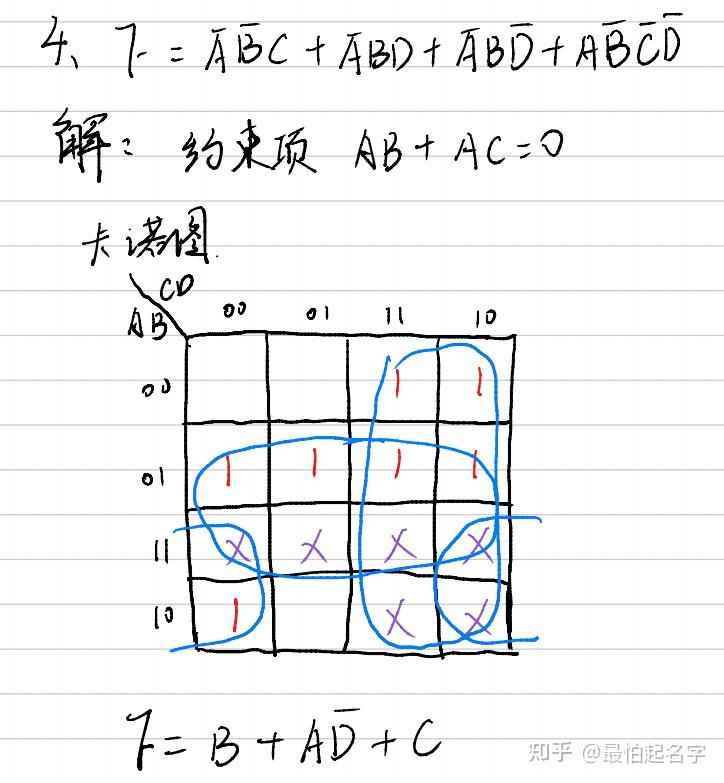 4、F = A̅B̅C + A̅BD + A̅BD̅ + AB̅C̅D̅
解：约束项 AB + AC = 0
卡诺图.
CD
AB 00 01 11 10
00 1 1
01 1 1 1 1
11 X X X X
10 1 X X
F = B + AD̅ + C
知乎 @最怕起名字